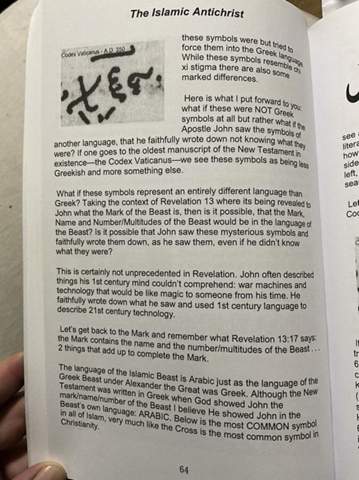 The Islamic Antichrist
Codex Vaticanus - A.D. 350
these symbols were but tried to
force them into the Greek language.
While these symbols resemble chi
xi stigma there are also some
marked differences.
Here is what I put forward to you:
what if these were NOT Greek
symbols at all but rather what if the
Apostle John saw the symbols of
another language, that he faithfully wrote down not knowing what they
were? If one goes to the oldest manuscript of the New Testament in
existence—the Codex Vaticanus—we see these symbols as being less
Greekish and more something else.
What if these symbols represent an entirely different language than
Greek? Taking the context of Revelation 13 where its being revealed to
John what the Mark of the Beast is, then is it possible, that the Mark,
Name and Number/Multitudes of the Beast would be in the language of
the Beast? Is it possible that John saw these mysterious symbols and
faithfully wrote them down, as he saw them, even if he didn't know
what they were?
This is certainly not unprecedented in Revelation. John often described
things his 1st century mind couldn't comprehend: war machines and
technology that would be like magic to someone from his time. He
faithfully wrote down what he saw and used 1st century language to
describe 21st century technology.
Let's get back to the Mark and remember what Revelation 13:17 says:
the Mark contains the name and the number/multitudes of the Beast . . .
2 things that add up to complete the Mark.
The language of the Islamic Beast is Arabic just as the language of the
Greek Beast under Alexander the Great was Greek. Although the New
Testament was written in Greek when God showed John the
mark/name/number of the Beast I believe He showed John in the
Beast's own language: ARABIC. Below is the most COMMON symbol
in all of Islam, very much like the Cross is the most common symbol in
Christianity.
64
see
litera
how
side
left,
sea
Let
Coo